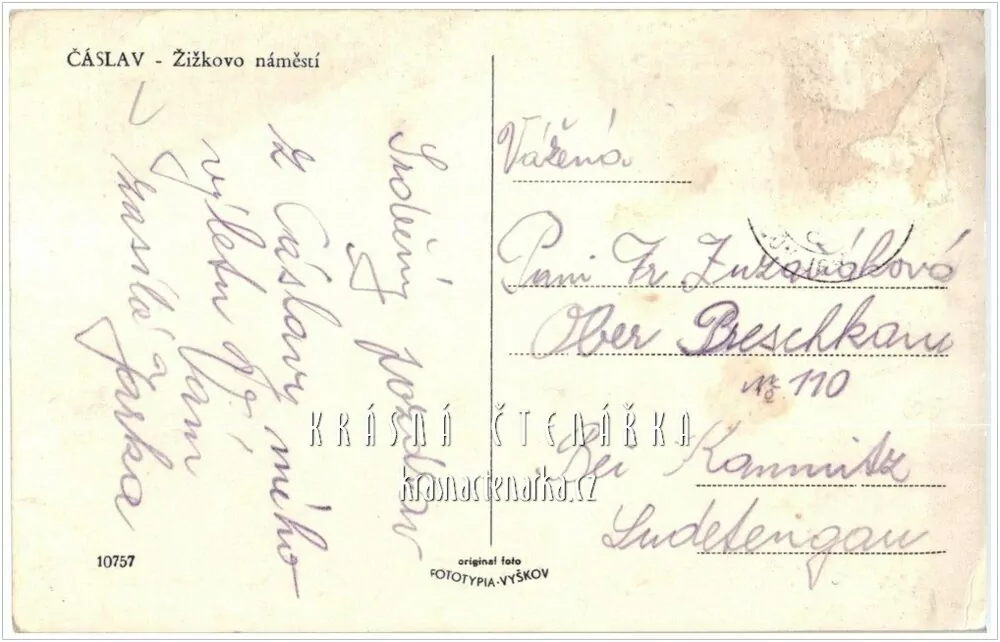 ČÁSLAV - Žižkovo náměstí
Srdečný pozdrav
z Čáslavy mého
výletu
zasílá Vám
Jarka
Vážená
Paní Fr Zuzaňáková
Ober Breschkau
No 110
Bei Kamnitz
Sudetengau
KRÁSNÁ ČTENÁŘKA
krasnactenarka.cz
10757
original foto
FOTOTYPIA-VYŠKOV